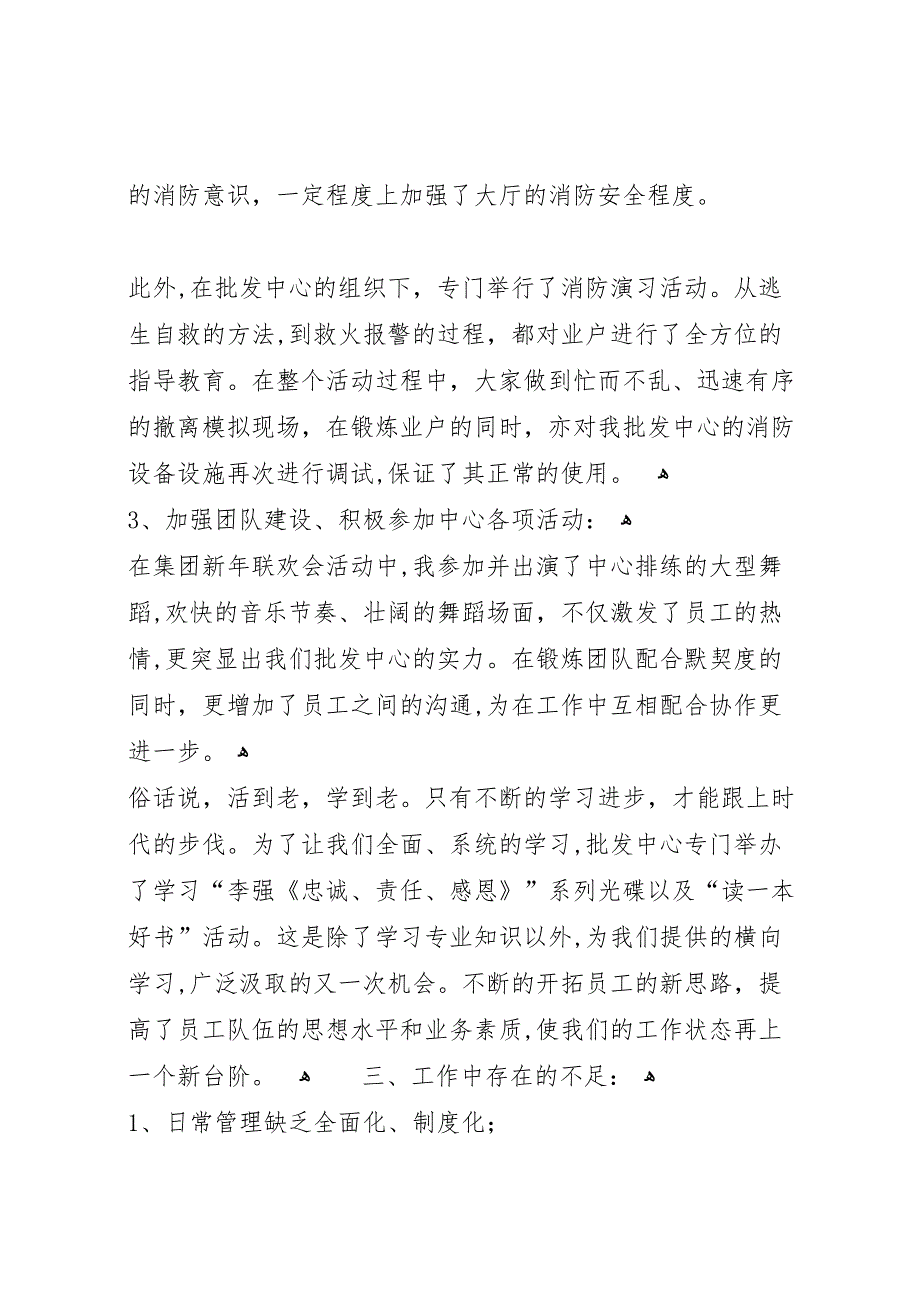 的消防意识，一定程度上加强了大厅的消防安全程度。
此外,在批发中心的组织下，专门举行了消防演习活动。从逃
生自救的方法,到救火报警的过程，都对业户进行了全方位的
指导教育。在整个活动过程中，大家做到忙而不乱、迅速有序
的撤离模拟现场，在锻炼业户的同时，亦对我批发中心的消防
设备设施再次进行调试,保证了其正常的使用。 ﻫ
3、加强团队建设、积极参加中心各项活动： ﻫ
在集团新年联欢会活动中,我参加并出演了中心排练的大型舞
蹈,欢快的音乐节奏、壮阔的舞蹈场面，不仅激发了员工的热
情,更突显出我们批发中心的实力。在锻炼团队配合默契度的
同时，更增加了员工之间的沟通,为在工作中互相配合协作更
进一步。 ﻫ
俗话说，活到老，学到老。只有不断的学习进步，才能跟上时
代的步伐。为了让我们全面、系统的学习,批发中心专门举办
了学习“李强《忠诚、责任、感恩》”系列光碟以及“读一本
好书”活动。这是除了学习专业知识以外,为我们提供的横向
学习,广泛汲取的又一次机会。不断的开拓员工的新思路，提
高了员工队伍的思想水平和业务素质,使我们的工作状态再上
一个新台阶。 ﻫ 三、工作中存在的不足： ﻫ
1、日常管理缺乏全面化、制度化；